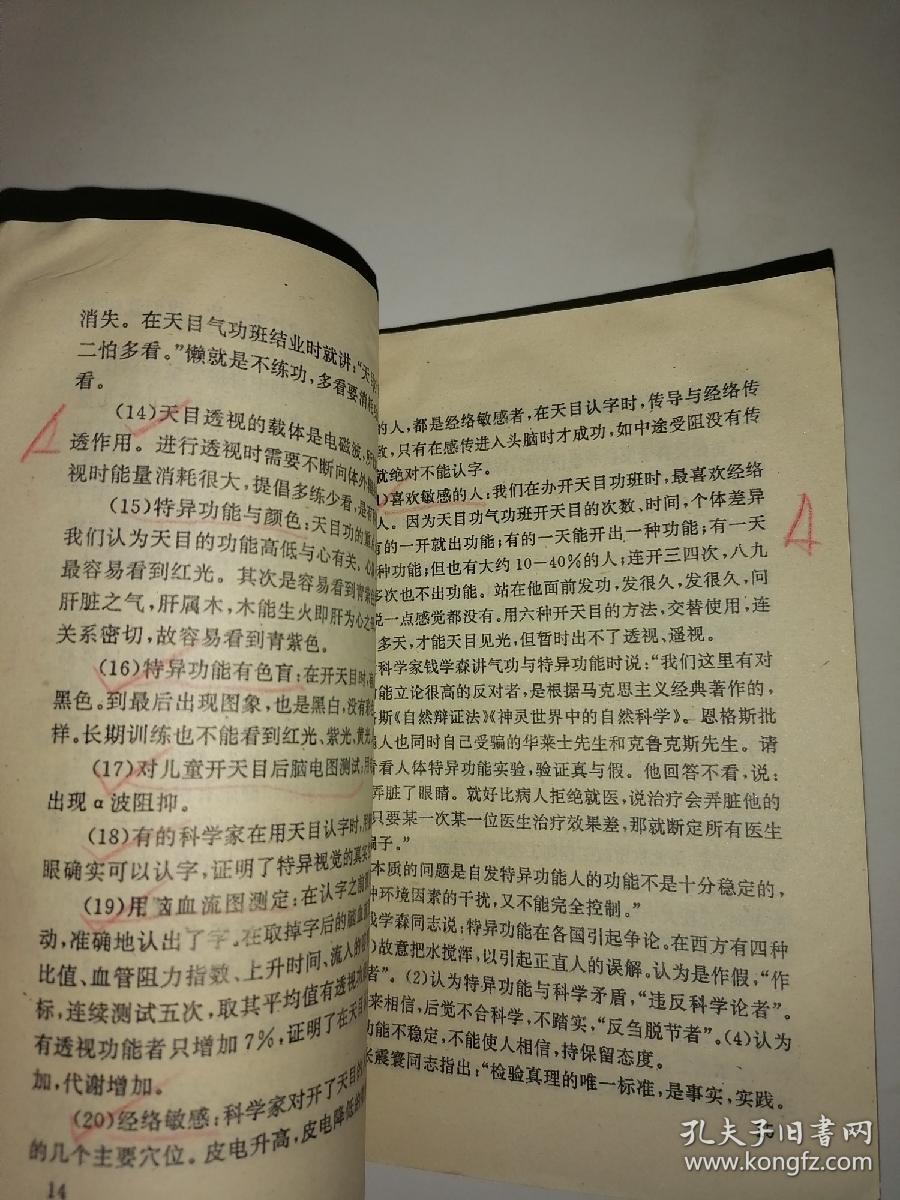 消失。在天目气功班结业时就讲：“天
二怕多看。”懒就是不练功，多看要消
看。
(14)天目透视的载体是电磁波，
透作用。进行透视时需要不断向体外
视时能量消耗很大，提倡多练少看，是
(15)特异功能与颜色：天目功的
我们认为天目的功能高低与心有关，心
最容易看到红光。其次是容易看到青紫
肝脏之气，肝属木，木能生火即肝为心之
关系密切，故容易看到青紫色。
(16)特异功能有色盲：在开天目时，
黑色。到最后出现图象，也是黑白，没有
样。长期训练也不能看到红光、紫光、黄光
(17)对儿童开天目后脑电图测试，
出现α波阻抑。
(18)有的科学家在用天目认字时，
眼确实可以认字，证明了特异视觉的真实
(19)用脑血流图测定：在认字之前
动，准确地认出了字。在取掉字后的脑血
比值、血管阻力指数、上升时间、流入
标，连续测试五次，取其平均值有透视
有透视功能者只增加7%，证明了在天目
加，代谢增加。
(20)经络敏感：科学家对开了天目的
的几个主要穴位。皮电升高，皮电降低
14
的人，都是经络敏感者，在天目认字时，传导与经络传
致，只有在感传进入头脑时才成功，如中途受阻没有传
就绝对不能认字。
1)喜欢敏感的人：我们在办开天目功班时，最喜欢经络
人。因为天目功气功班开天目的次数、时间，个体差异
有的一开就出功能；有的一天能开出一种功能；有一天
种功能；但也有大约10—40%的人；连开三四次，八九
多次也不出功能。站在他面前发功，发很久，发很久，问
说一点感觉都没有。用六种开天目的方法，交替使用，连
多天，才能天目见光，但暂时出不了透视、遥视。
科学家钱学森讲气功与特异功能时说：“我们这里有对
功能立论很高的反对者，是根据马克思主义经典著作的，
格斯《自然辩证法》《神灵世界中的自然科学》。恩格斯批
人也同时自己受骗的华莱士先生和克鲁克斯先生。请
看看人体特异功能实验，验证真与假。他回答不看，说：
弄脏了眼睛。就好比病人拒绝就医，说治疗会弄脏他的
只要某一次某一位医生治疗效果差，那就断定所有医生
骗子。”
本质的问题是自发特异功能人的功能不是十分稳定的，
中环境因素的干扰，又不能完全控制。”
学森同志说：特异功能在各国引起争论。在西方有四种
)故意把水搅浑，以引起正直人的误解。认为是作假，“作
者”。(2)认为特异功能与科学矛盾，“违反科学论者”。
来相信，后觉不合科学，不踏实，“反刍脱节者”。(4)认为
功能不稳定，不能使人相信，持保留态度。
长震寰同志指出：“检验真理的唯一标准，是事实，实践。
孔夫子旧书网
www.kongfz.com